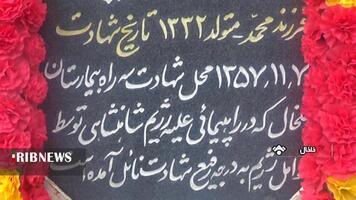 فرزند محمد متولد ۱۳۳۲ تاریخ شهادت
۱۳۵۷,۱۱,۷ محل شهادت سه راه بیمارستان
خلخال که در راهپیمائی علیه رژیم شاهنشاهی توسط
رژیم به درجه رفیع شهادت نائل آمده است
خلخال
IRIBNEWS